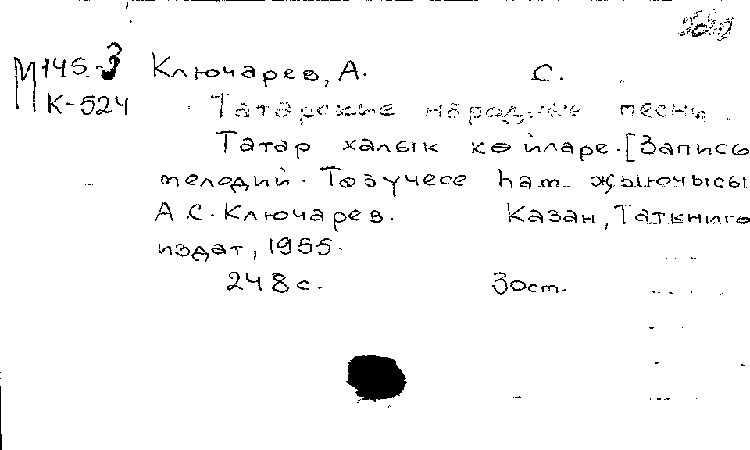 М 145-3 Ключарев, А. С.
К-524 Татарские народные песни.
Татар халык көйләре. [Запись
мелодий. Төзүчесе һәм җыючысы
А.С. Ключарев. Казан, Таткниго
издат, 1955.
248 с. 30 см.